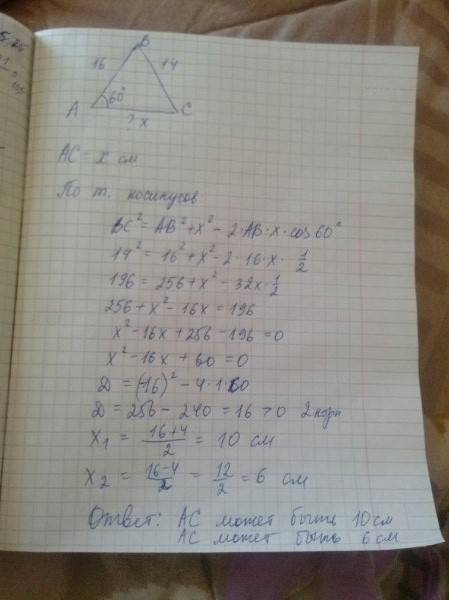 B
16 14
A 60° C
? x
AC = x см
По т. косинусов
BC² = AB² + x² - 2·AB·x·cos60°
14² = 16² + x² - 2·16·x·1/2
196 = 256 + x² - 32x·1/2
256 + x² - 16x = 196
x² - 16x + 256 - 196 = 0
x² - 16x + 60 = 0
D = (-16)² - 4·1·60
D = 256 - 240 = 16 > 0 2 корн
x₁ = (16+4)/2 = 10 см
x₂ = (16-4)/2 = 12/2 = 6 см
Ответ: AC может быть 10 см
AC может быть 6 см